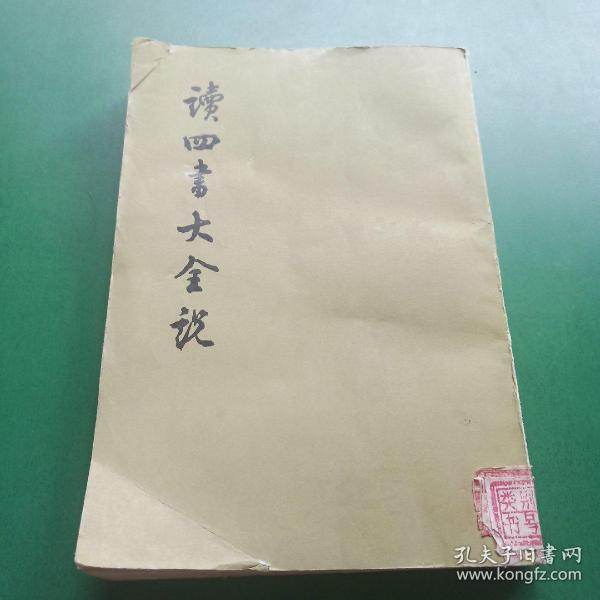 讀四書大全説
类刊
孔夫子旧书网
www.kongfz.com